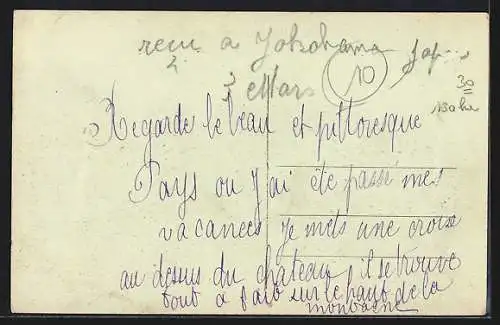 recu a Yokohama Jap
10
3 Mars
30
Regarde le beau et pittoresque
Pays ou J'ai éte passé mes
vacances Je mets une croix
au dessus du chateau il se trouve
tout a fait sur le haut de la
montagne